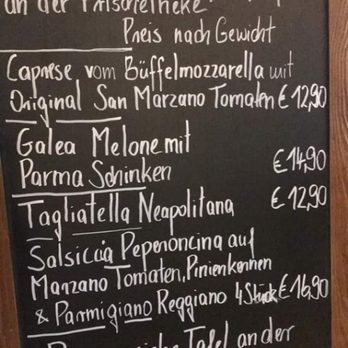 an der Frischetheke
Preis nach Gewicht
Caprese vom Büffelmozzarella mit
Original San Marzano Tomaten €12,90
Galea Melone mit
Parma Schinken €14,90
Tagliatella Neapolitana €12,90
Salsiccia Peperoncina auf
Marzano Tomaten, Pinienkernen
& Parmigiano Reggiano 4 Stück €16,90
Tafel an der